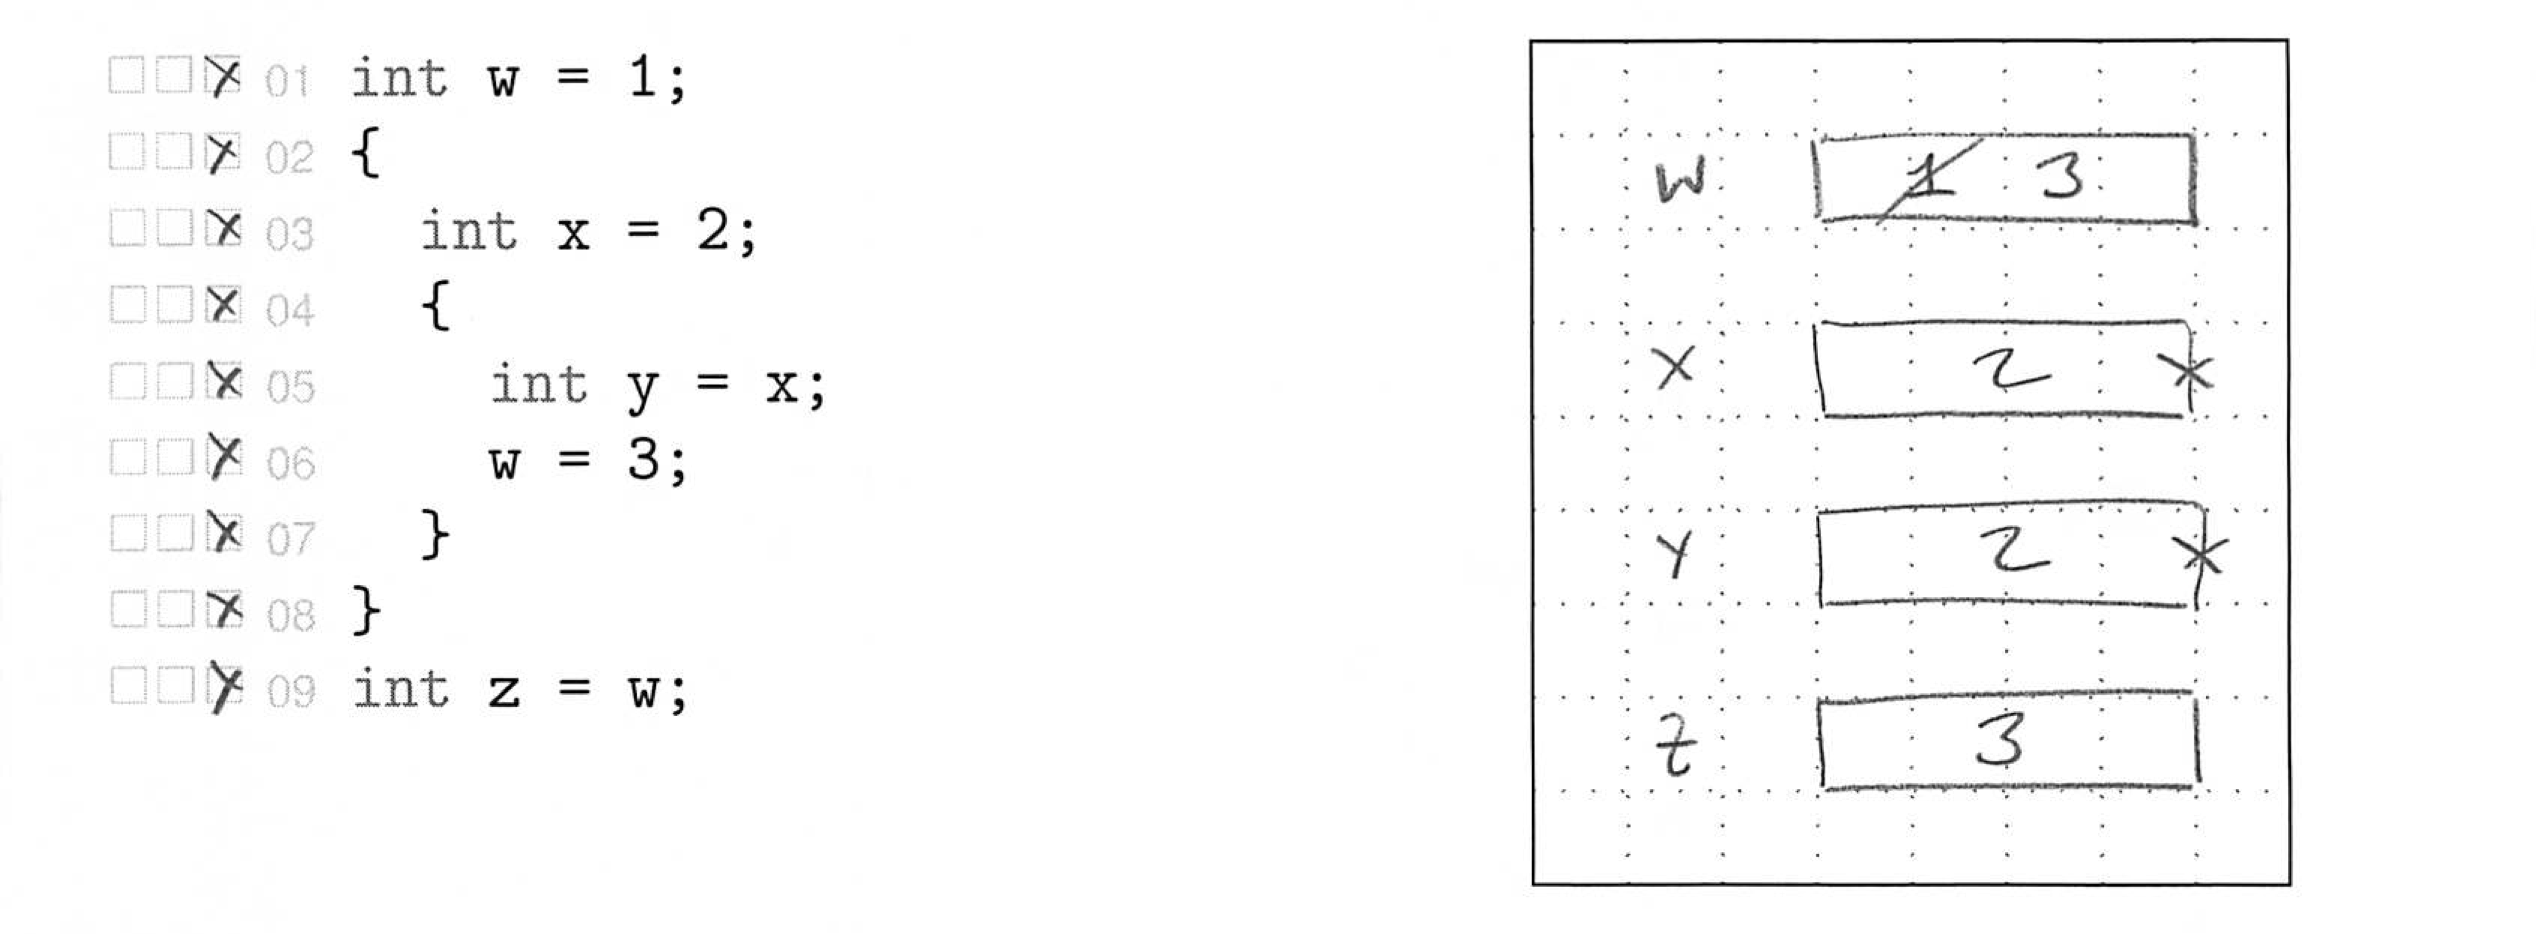 01 int w = 1;
02 {
03 int x = 2;
04 {
05 int y = x;
06 w = 3;
07 }
08 }
09 int z = w;
W 1 3
X 2 X
Y 2 X
Z 3